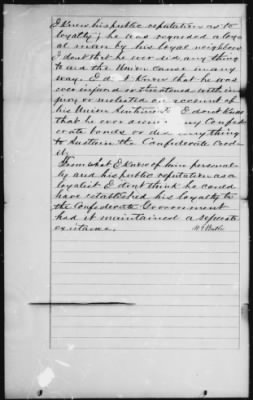 I knew his public reputation as to
loyalty; he was regarded a loy
al man by his loyal neighbors
I dont that he ever did any thing
to aid the Union cause in any
way. I d I knew that he was
ever injured or threatened with in
jury or molested on account of
his Union sentiments I dont know
that he ever own any Confed
erate bonds or did anything
to sustain the Confederate Cred
it,
From what I know of him personal
ly and his public reputation as a
loyalist I dont think he could
have established his loyalty to
the Confederate Government
had it maintained a separate
existance.